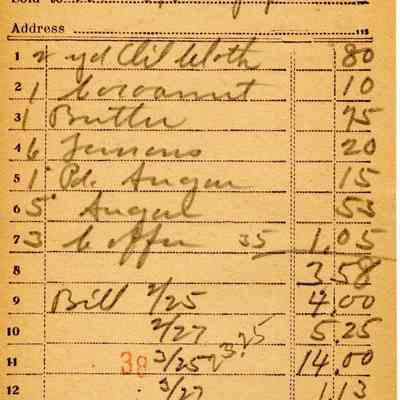 Sold to
Address
1 2 yd Oil Cloth 80
2 1 Cocoanut 10
3 1 Butter 75
4 6 Lemons 20
5 1 Pd. Sugar 15
6 5 Sugar 53
7 3 Coffee 35 1.05
8 3.58
9 Bill 2/25 4.00
10 2/27 5.25
11 38 3/25 14.00
12 3/27 1.13